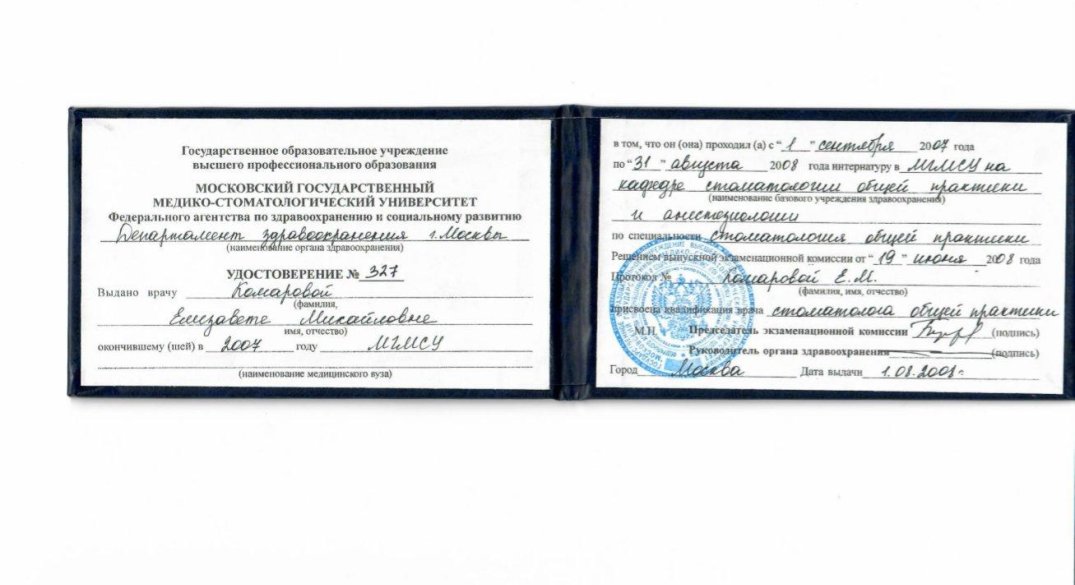 Государственное образовательное учреждение
высшего профессионального образования
МОСКОВСКИЙ ГОСУДАРСТВЕННЫЙ
МЕДИКО-СТОМАТОЛОГИЧЕСКИЙ УНИВЕРСИТЕТ
Федерального агентства по здравоохранению и социальному развитию
Департамент здравоохранения г. Москвы
(наименование органа здравоохранения)
УДОСТОВЕРЕНИЕ № 327
Выдано врачу Комаровой
(фамилия,
Елизавете Михайловне
имя, отчество)
окончившему (шей) в 2007 году МГМСУ
(наименование медицинского вуза)
в том, что он (она) проходил (а) с “ 1 ” сентября 2007 года
по “31 ” августа 2008 года интернатуру в МГМСУ на
кафедре стоматологии общей практики
(наименование базового учреждения здравоохранения)
и анестезиологии
по специальности стоматология общей практики
Решением выпускной экзаменационной комиссии от “ 19 ” июня 2008 года
Протокол № Комаровой Е.М.
(фамилия, имя, отчество)
присвоена квалификация врача стоматолога общей практики
М.П. Председатель экзаменационной комиссии (подпись)
Руководитель органа здравоохранения (подпись)
Город Москва Дата выдачи 1.08.2008г.